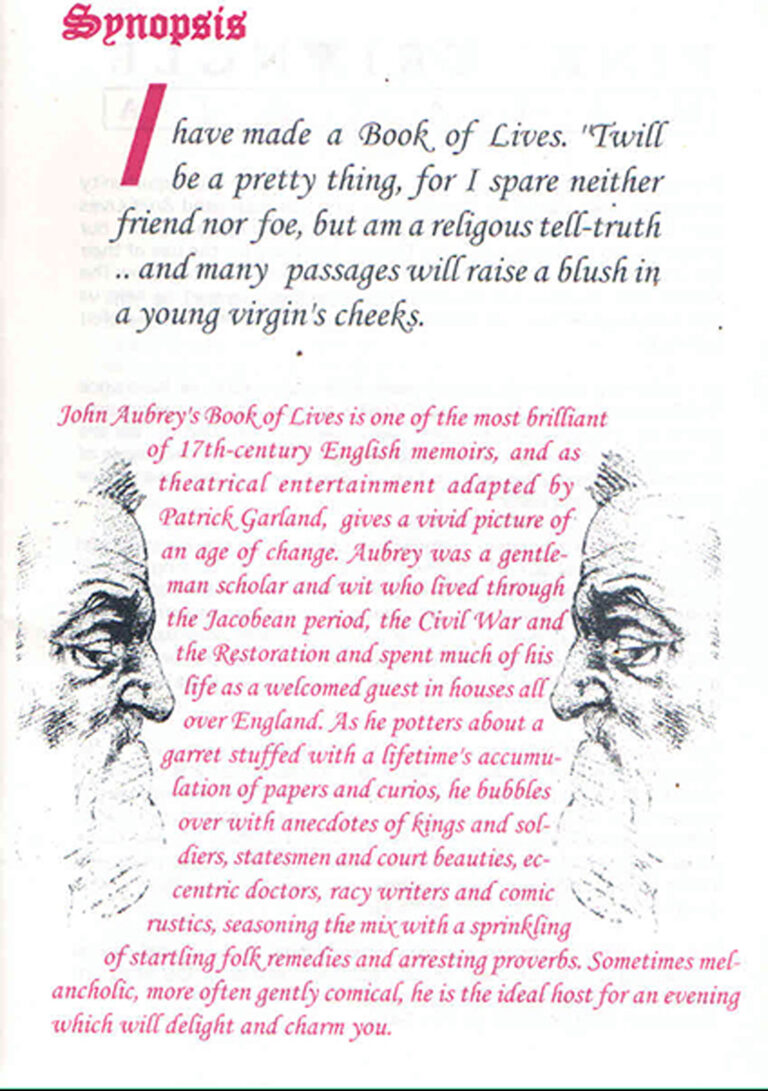 Synopsis
I have made a Book of Lives. "Twill
be a pretty thing, for I spare neither
friend nor foe, but am a religous tell-truth
...and many passages will raise a blush in
a young virgin's cheeks.
John Aubrey's Book of Lives is one of the most brilliant
of 17th-century English memoirs, and as
theatrical entertainment adapted by
Patrick Garland, gives a vivid picture of
an age of change. Aubrey was a gentle-
man scholar and wit who lived through
the Jacobean period, the Civil War and
the Restoration and spent much of his
life as a welcomed guest in houses all
over England. As he potters about a
garret stuffed with a lifetime's accumu-
lation of papers and curios, he bubbles
over with anecdotes of kings and sol-
diers, statesmen and court beauties, ec-
centric doctors, racy writers and comic
rustics, seasoning the mix with a sprinkling
of startling folk remedies and arresting proverbs. Sometimes mel-
ancholic, more often gently comical, he is the ideal host for an evening
which will delight and charm you.